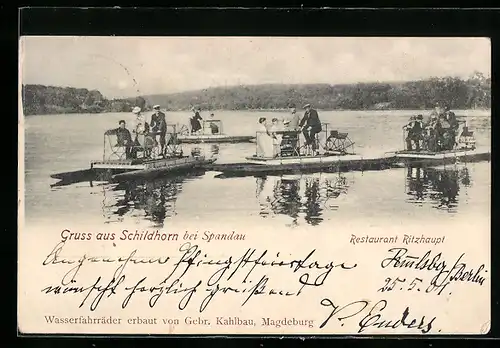 Gruss aus Schildhorn bei Spandau
Restaurant Ritzhaupt
Angenehme Pfingstfeiertage
wünscht herzlich grüßend
Berlin
25.5.01
P. Enders
Wasserfahrräder erbaut von Gebr. Kahlbau, Magdeburg